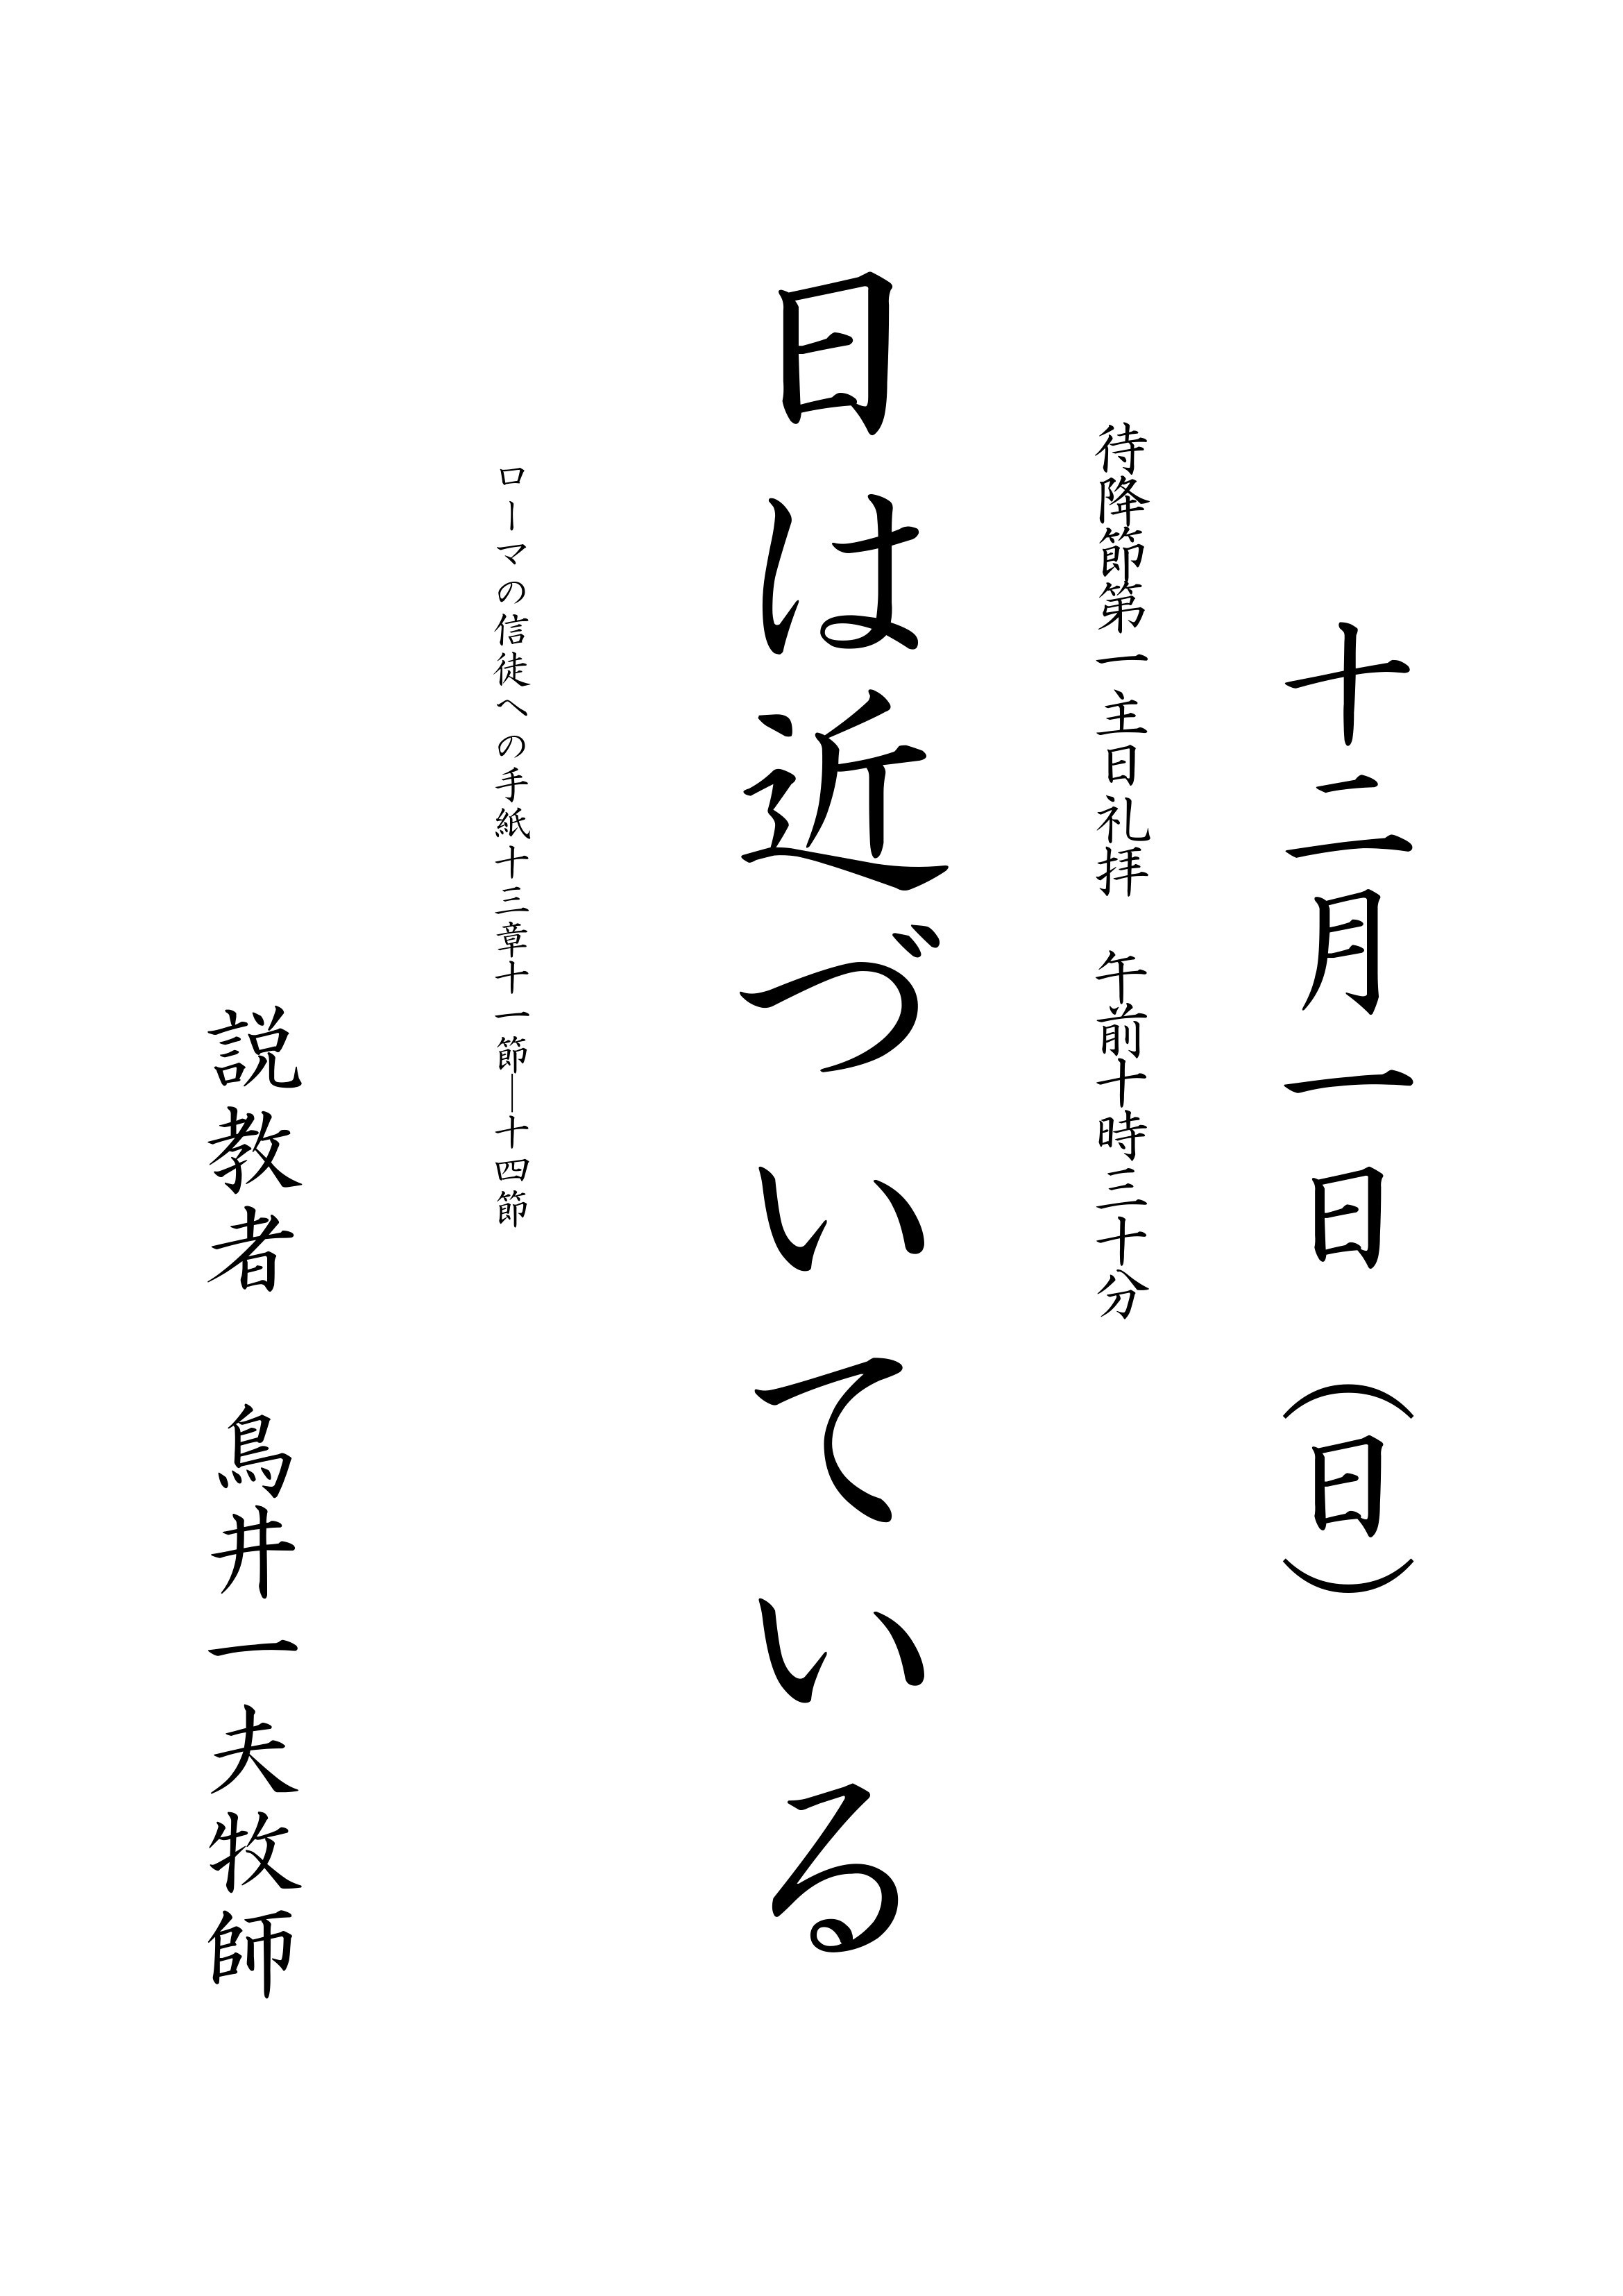 十二月一日（日）
待降節第一主日礼拝　午前十時三十分
日は近づいている
ローマの信徒への手紙十三章十一節―十四節
説教者　鳥井一夫牧師